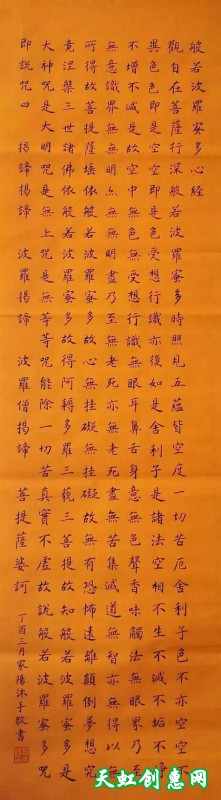 般若波羅蜜多心經
觀自在菩薩行深般若波羅蜜多時照見五蘊皆空度一切苦厄舍利子色不亦空空不
異色色即是空空即是色受想行識亦復如是舍利子是諸法空相不生不滅不垢不淨
不增不減是故空中無色無受想行識無眼耳鼻舌身意無色聲香味觸法無眼界乃至
無意識界無無明亦無無明盡乃至無老死亦無老死盡無苦集滅道無智亦無得以無
所得故菩提薩埵依般若波羅蜜多故心無挂礙無挂礙故無有恐怖遠離顛倒夢想究
竟涅槃三世諸佛依般若波羅蜜多故得阿耨多羅三藐三菩提故知般若波羅蜜多是
大神咒是大明咒是無上咒是無等等咒能除一切苦真實不虛故說般若波羅蜜多咒
即說咒曰 揭諦揭諦 波羅揭諦 波羅僧揭諦 菩提薩婆訶
丁酉三月家陽沐手敬書
天虹创惠网